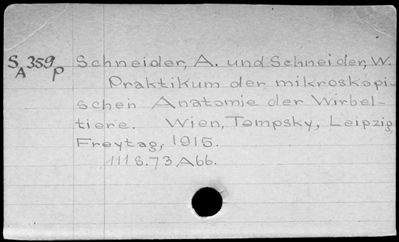 S 359 Schneider, A. und Schneider, W.
A p
Praktikum der mikroskopi-
schen Anatomie der Wirbel-
tiere. Wien, Tempsky, Leipzig
Freytag, 1915.
111 S. 73 Abb.